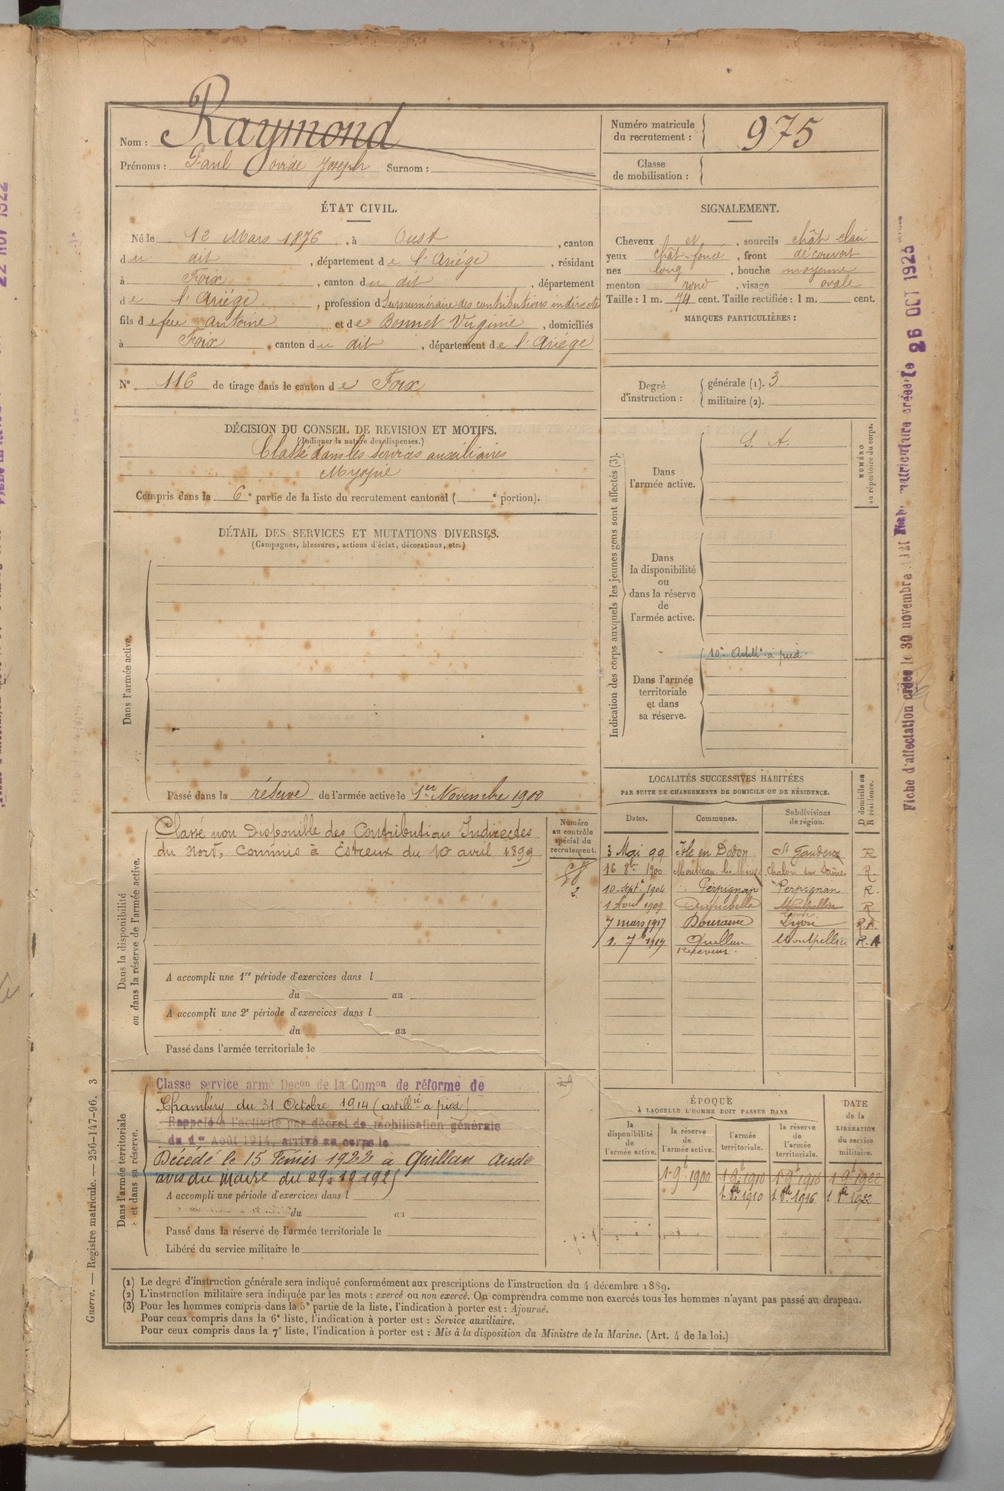 Nom : Raymond
Prénoms : Paul Joseph Surnom :
Numéro matricule du recrutement : 975
Classe de mobilisation :
ÉTAT CIVIL.
Né le 12 Mars 1876, à Oust, canton
du dit, département de l'Ariège, résidant
à Foix, canton du dit, département
de l'Ariège, profession de surnuméraire des contributions indirectes
fils de feu Antoine et de Bonnet Virginie, domiciliés
à Foix, canton du dit, département de l'Ariège
N° 116 de tirage dans le canton de Foix
SIGNALEMENT.
Cheveux et, sourcils chât clair
yeux chât foncé, front découvert
nez long, bouche moyenne
menton rond, visage ovale
Taille : 1 m. 74 cent. Taille rectifiée : 1 m. cent.
MARQUES PARTICULIÈRES :
Degré d'instruction : générale (1). 3
militaire (2).
DÉCISION DU CONSEIL DE REVISION ET MOTIFS.
(Indiquer la nature des dispenses.)
Classé dans les services auxiliaires
Myopie
Compris dans la 6e partie de la liste du recrutement cantonal ( e portion).
DÉTAIL DES SERVICES ET MUTATIONS DIVERSES.
(Campagnes, blessures, actions d'éclat, décorations, etc.)
Dans l'armée active.
Passé dans la réserve de l'armée active le 1er Novembre 1900
Indication des corps auxquels les jeunes gens sont affectés (3).
Dans l'armée active.
S. A.
NUMÉRO au répertoire du corps.
Dans la disponibilité ou dans la réserve de l'armée active.
Dans l'armée territoriale et dans sa réserve.
10e Artillie à pied
Dans la disponibilité ou dans la réserve de l'armée active.
Classé non Disponible des Contributions Indirectes
du Nord, Commis à Estreux du 10 avril 1899
Numéro au contrôle spécial du recrutement.
A accompli une 1re période d'exercices dans l
du au
A accompli une 2e période d'exercices dans l
du au
Passé dans l'armée territoriale le
LOCALITÉS SUCCESSIVES HABITÉES
PAR SUITE DE CHANGEMENTS DE DOMICILE OU DE RÉSIDENCE.
Dates. Communes. Subdivisions de région. D domicile ou R résidence.
3 Mai 99 Isle en Dodon St Gaudens R
16 8bre 1900 Montceau les Mines Chalon sur Saône R
10 Septe 1904 Perpignan Perpignan R.
1 Aout 1909 Montpellier R
7 mars 1917 Lyon R.A.
1. 7b 1919 Quillan Montpellier R.A
receveur
Dans l'armée territoriale et dans sa réserve.
Classé service armé Decon de la Comon de réforme de
Chambéry du 31 Octobre 1914 (artillrie à pied)
Rappelé à l'activité par décret de mobilisation générale
du 1er Août 1914, arrivé au corps le
Décédé le 15 Février 1922 à Quillan Aude
avis du Maire du
A accompli une période d'exercices dans l
du au
Passé dans la réserve de l'armée territoriale le
Libéré du service militaire le
ÉPOQUE
À LAQUELLE L'HOMME DOIT PASSER DANS
DATE de la LIBÉRATION du service militaire.
la disponibilité de l'armée active. la réserve de l'armée active. l'armée territoriale. la réserve de l'armée territoriale.
1 9e 1900 1 9e 1910 1 9e 1916 1 9e 1922
1 8bre 1910 1 8bre 1916 1 8bre 1922
(1) Le degré d'instruction générale sera indiqué conformément aux prescriptions de l'instruction du 4 décembre 1889.
(2) L'instruction militaire sera indiquée par les mots : exercé ou non exercé. On comprendra comme non exercés tous les hommes n'ayant pas passé au drapeau.
(3) Pour les hommes compris dans la 5e partie de la liste, l'indication à porter est : Ajourné.
Pour ceux compris dans la 6e liste, l'indication à porter est : Service auxiliaire.
Pour ceux compris dans la 7e liste, l'indication à porter est : Mis à la disposition du Ministre de la Marine. (Art. 4 de la loi.)
Guerre. — Registre matricule. — 256-147-96. 3
Fiche d'affectation créée le 30 novembre
26 OCT 1923
22 NOV 1922